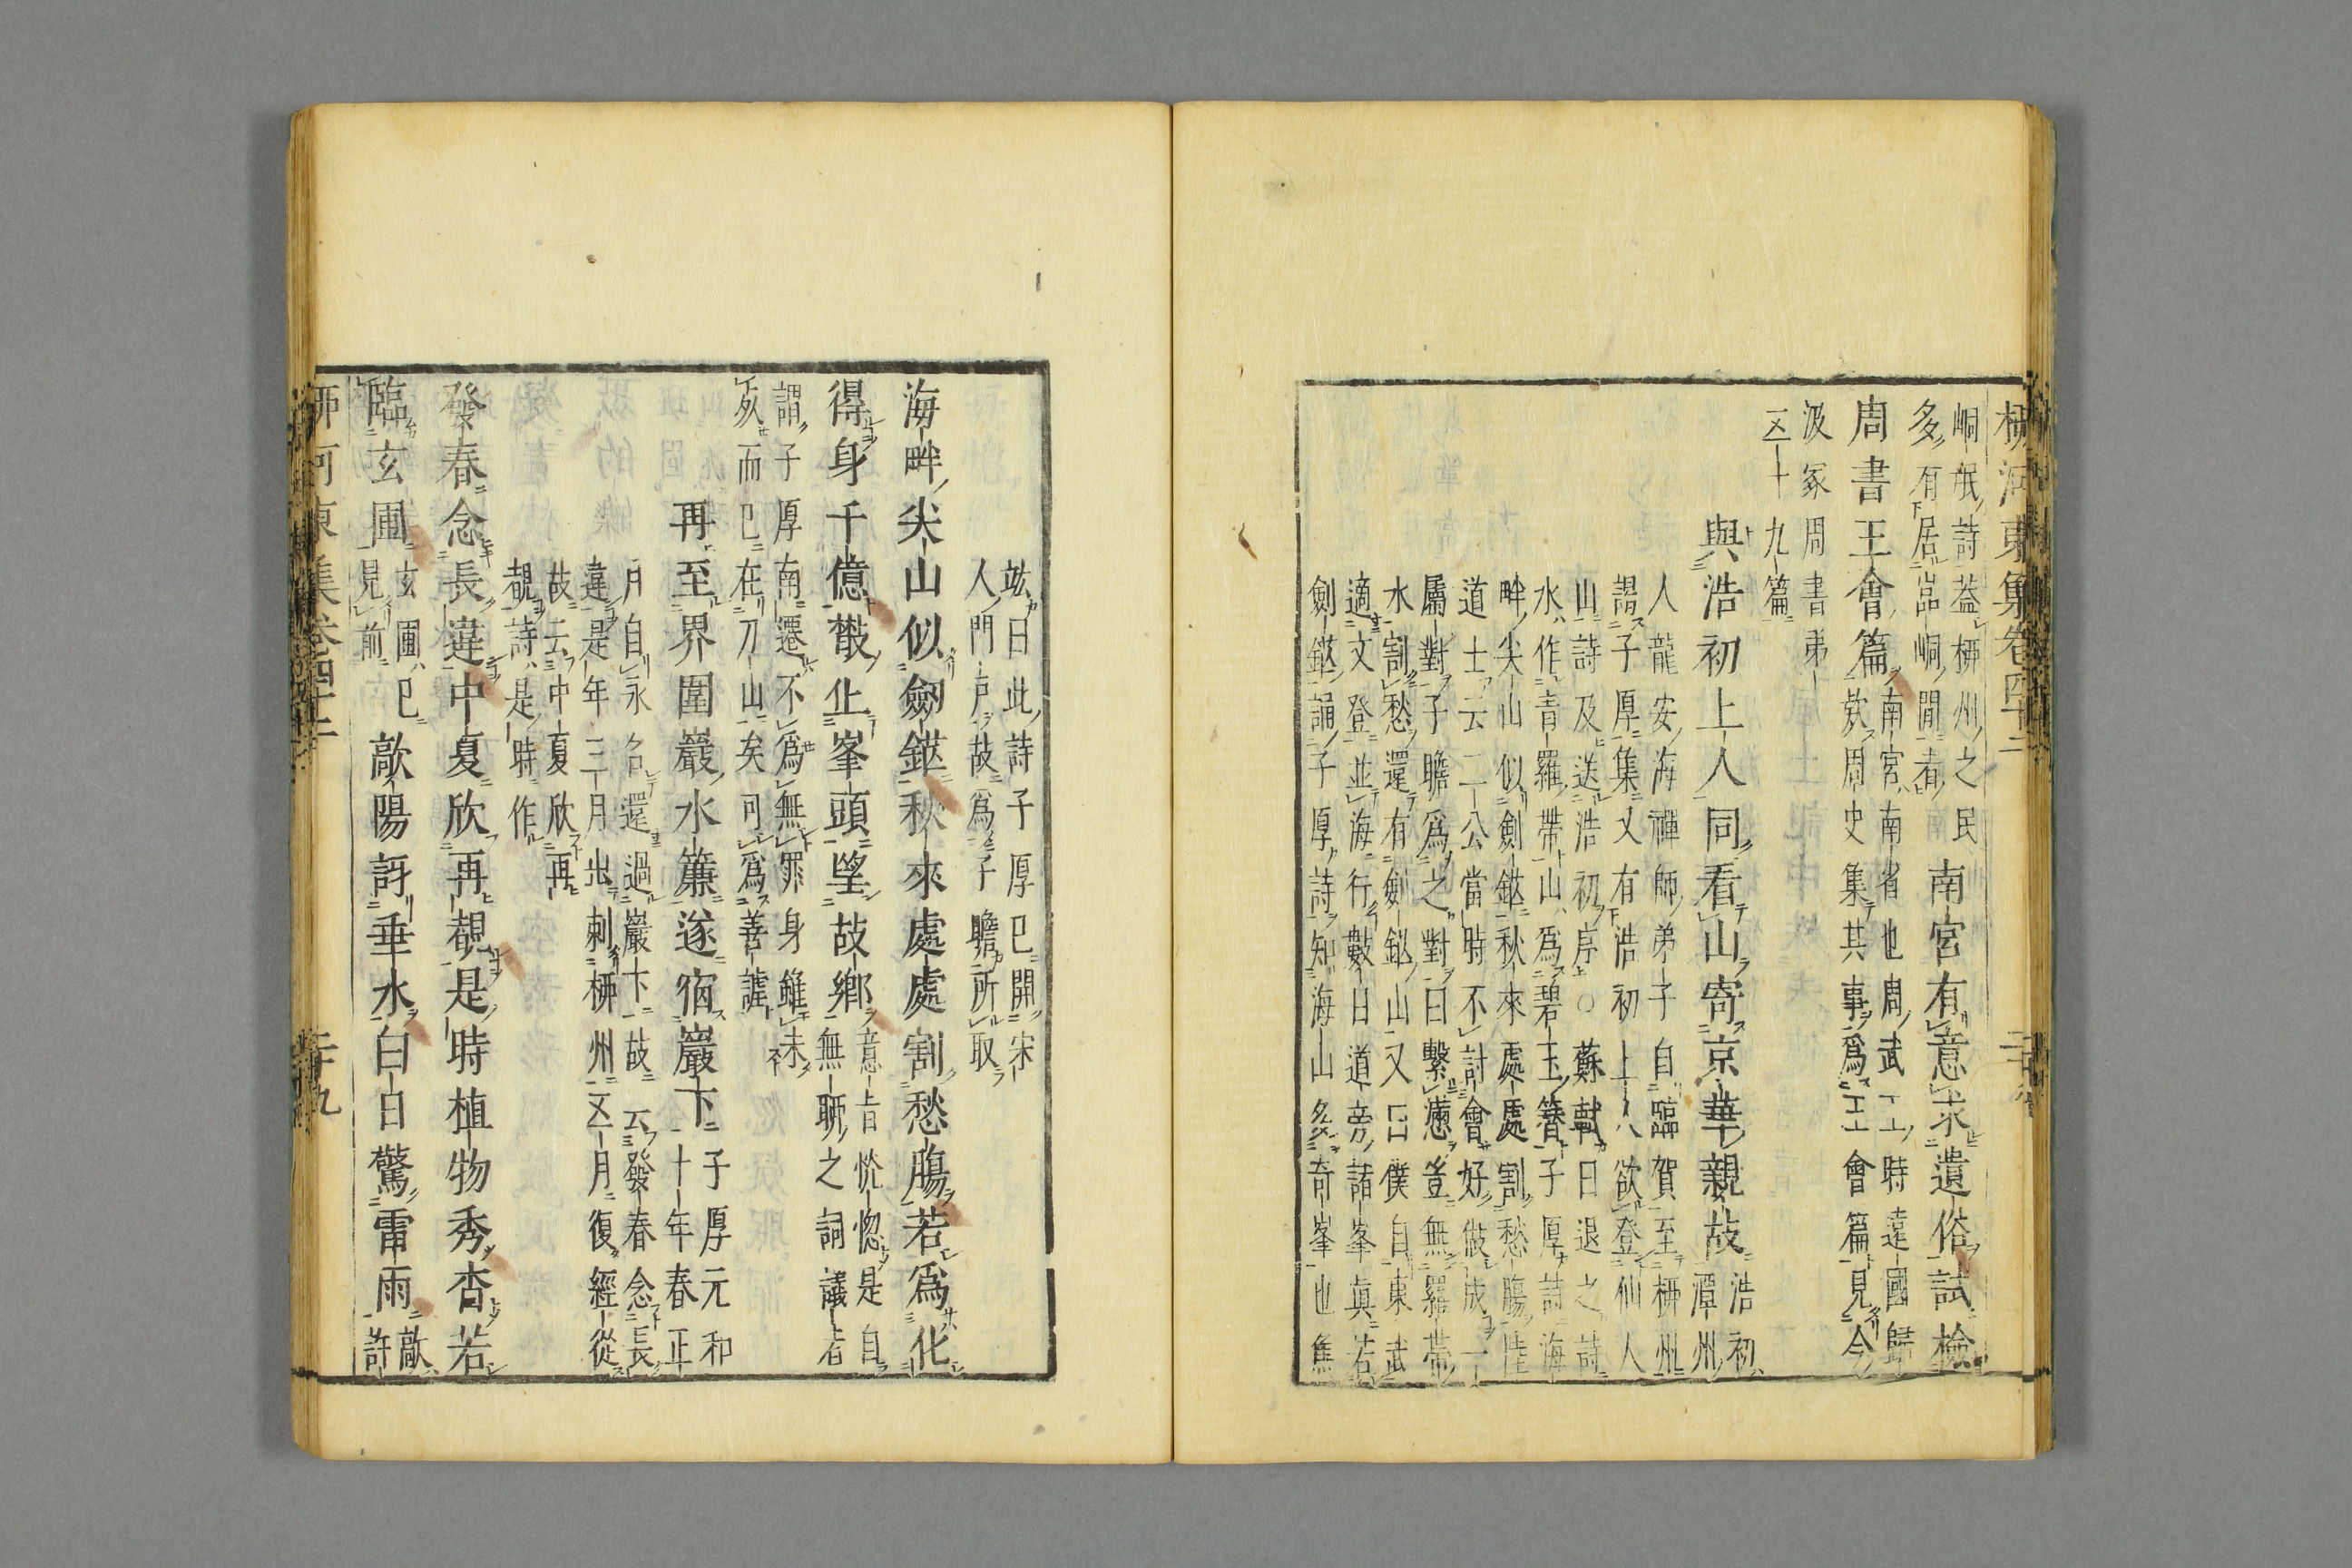 柳河東集卷四十二
峒氓詩蓋柳州之民
多有居嵓峒閒者
南宮有意求遺俗試檢
周書王會篇
南宮南省也周武王時遠國歸
欵周史集其事爲王會篇見今
汲冢周書弟
五十九篇
與浩初上人同看山寄京華親故
浩初
潭州
人龍安海禪師弟子自臨賀至柳州
謂子厚集又有浩初上人欲登仙人
山詩及送浩初序○蘇軾曰退之詩
水作青羅帶山爲碧玉簪子厚詩海
畔尖山似劍鋩秋來處處割愁腸陸
道士云二公當時不討會好做成一
屬對子瞻爲之對曰繫懣豈無羅帶
水割愁還有劍鋩山又曰僕自東武
適文登並海行數日道旁諸峯真若
劍鋩誦子厚詩知海山多奇峯也焦
竑曰此詩子厚已開宋
人門戶故爲子瞻所取
海畔尖山似劒鋩秋來處處割愁膓若爲化
得身千億散㱏峯頭望故鄉
意㫖恍惚是自
無聊之詞議者
謂子厚南遷不爲無罪身雖未
死而已在刀山矣可爲善謔
再至界圍巖水簾遂宿巖下
子厚元和
十年春正
月自永召還過巖下故云發春念長
違是年三月出刺柳州五月復經從
故云中夏欣再
覩詩是時作
發春念長違中夏欣再覩是時植物秀杳若
臨玄圃
玄圃已
見前
歊陽訝垂水白日驚雷雨
歊
許
柳河東集卷四十二
二十九